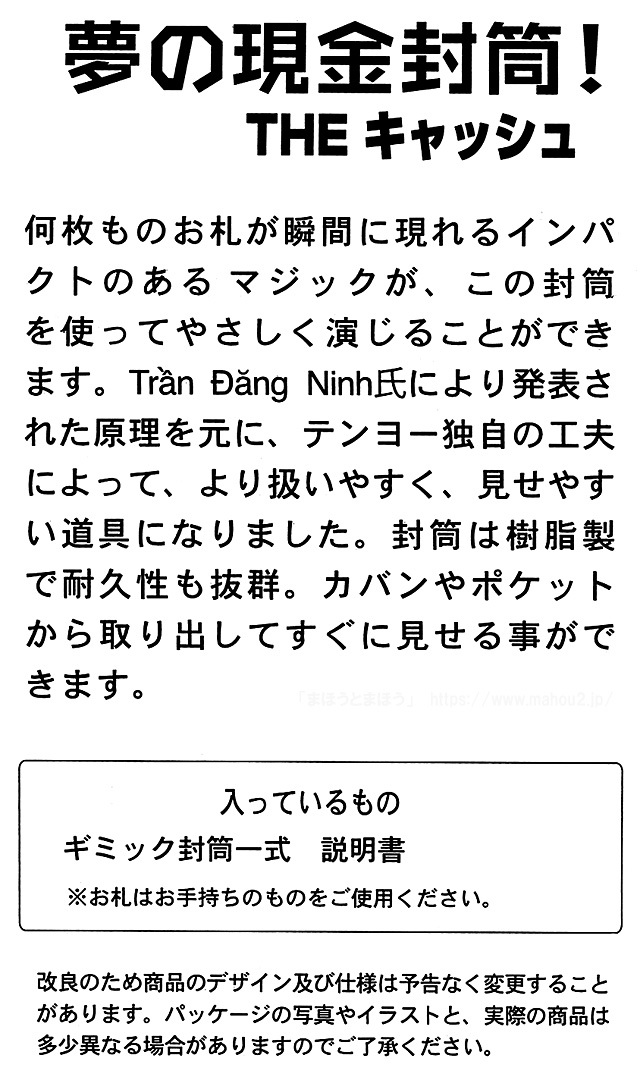 夢の現金封筒！
THE キャッシュ
何枚ものお札が瞬間に現れるインパ
クトのある マジックが、この封筒
を使ってやさしく演じることができ
ます。Trần Đăng Ninh氏により発表さ
れた原理を元に、テンヨー独自の工夫
によって、より扱いやすく、見せやす
い道具になりました。封筒は樹脂製
で耐久性も抜群。カバンやポケット
から取り出してすぐに見せる事がで
きます。
「まほうとまほう」 https://www.mahou2.jp/
入っているもの
ギミック封筒一式　説明書
※お札はお手持ちのものをご使用ください。
改良のため商品のデザイン及び仕様は予告なく変更すること
があります。パッケージの写真やイラストと、実際の商品は
多少異なる場合がありますのでご了承ください。